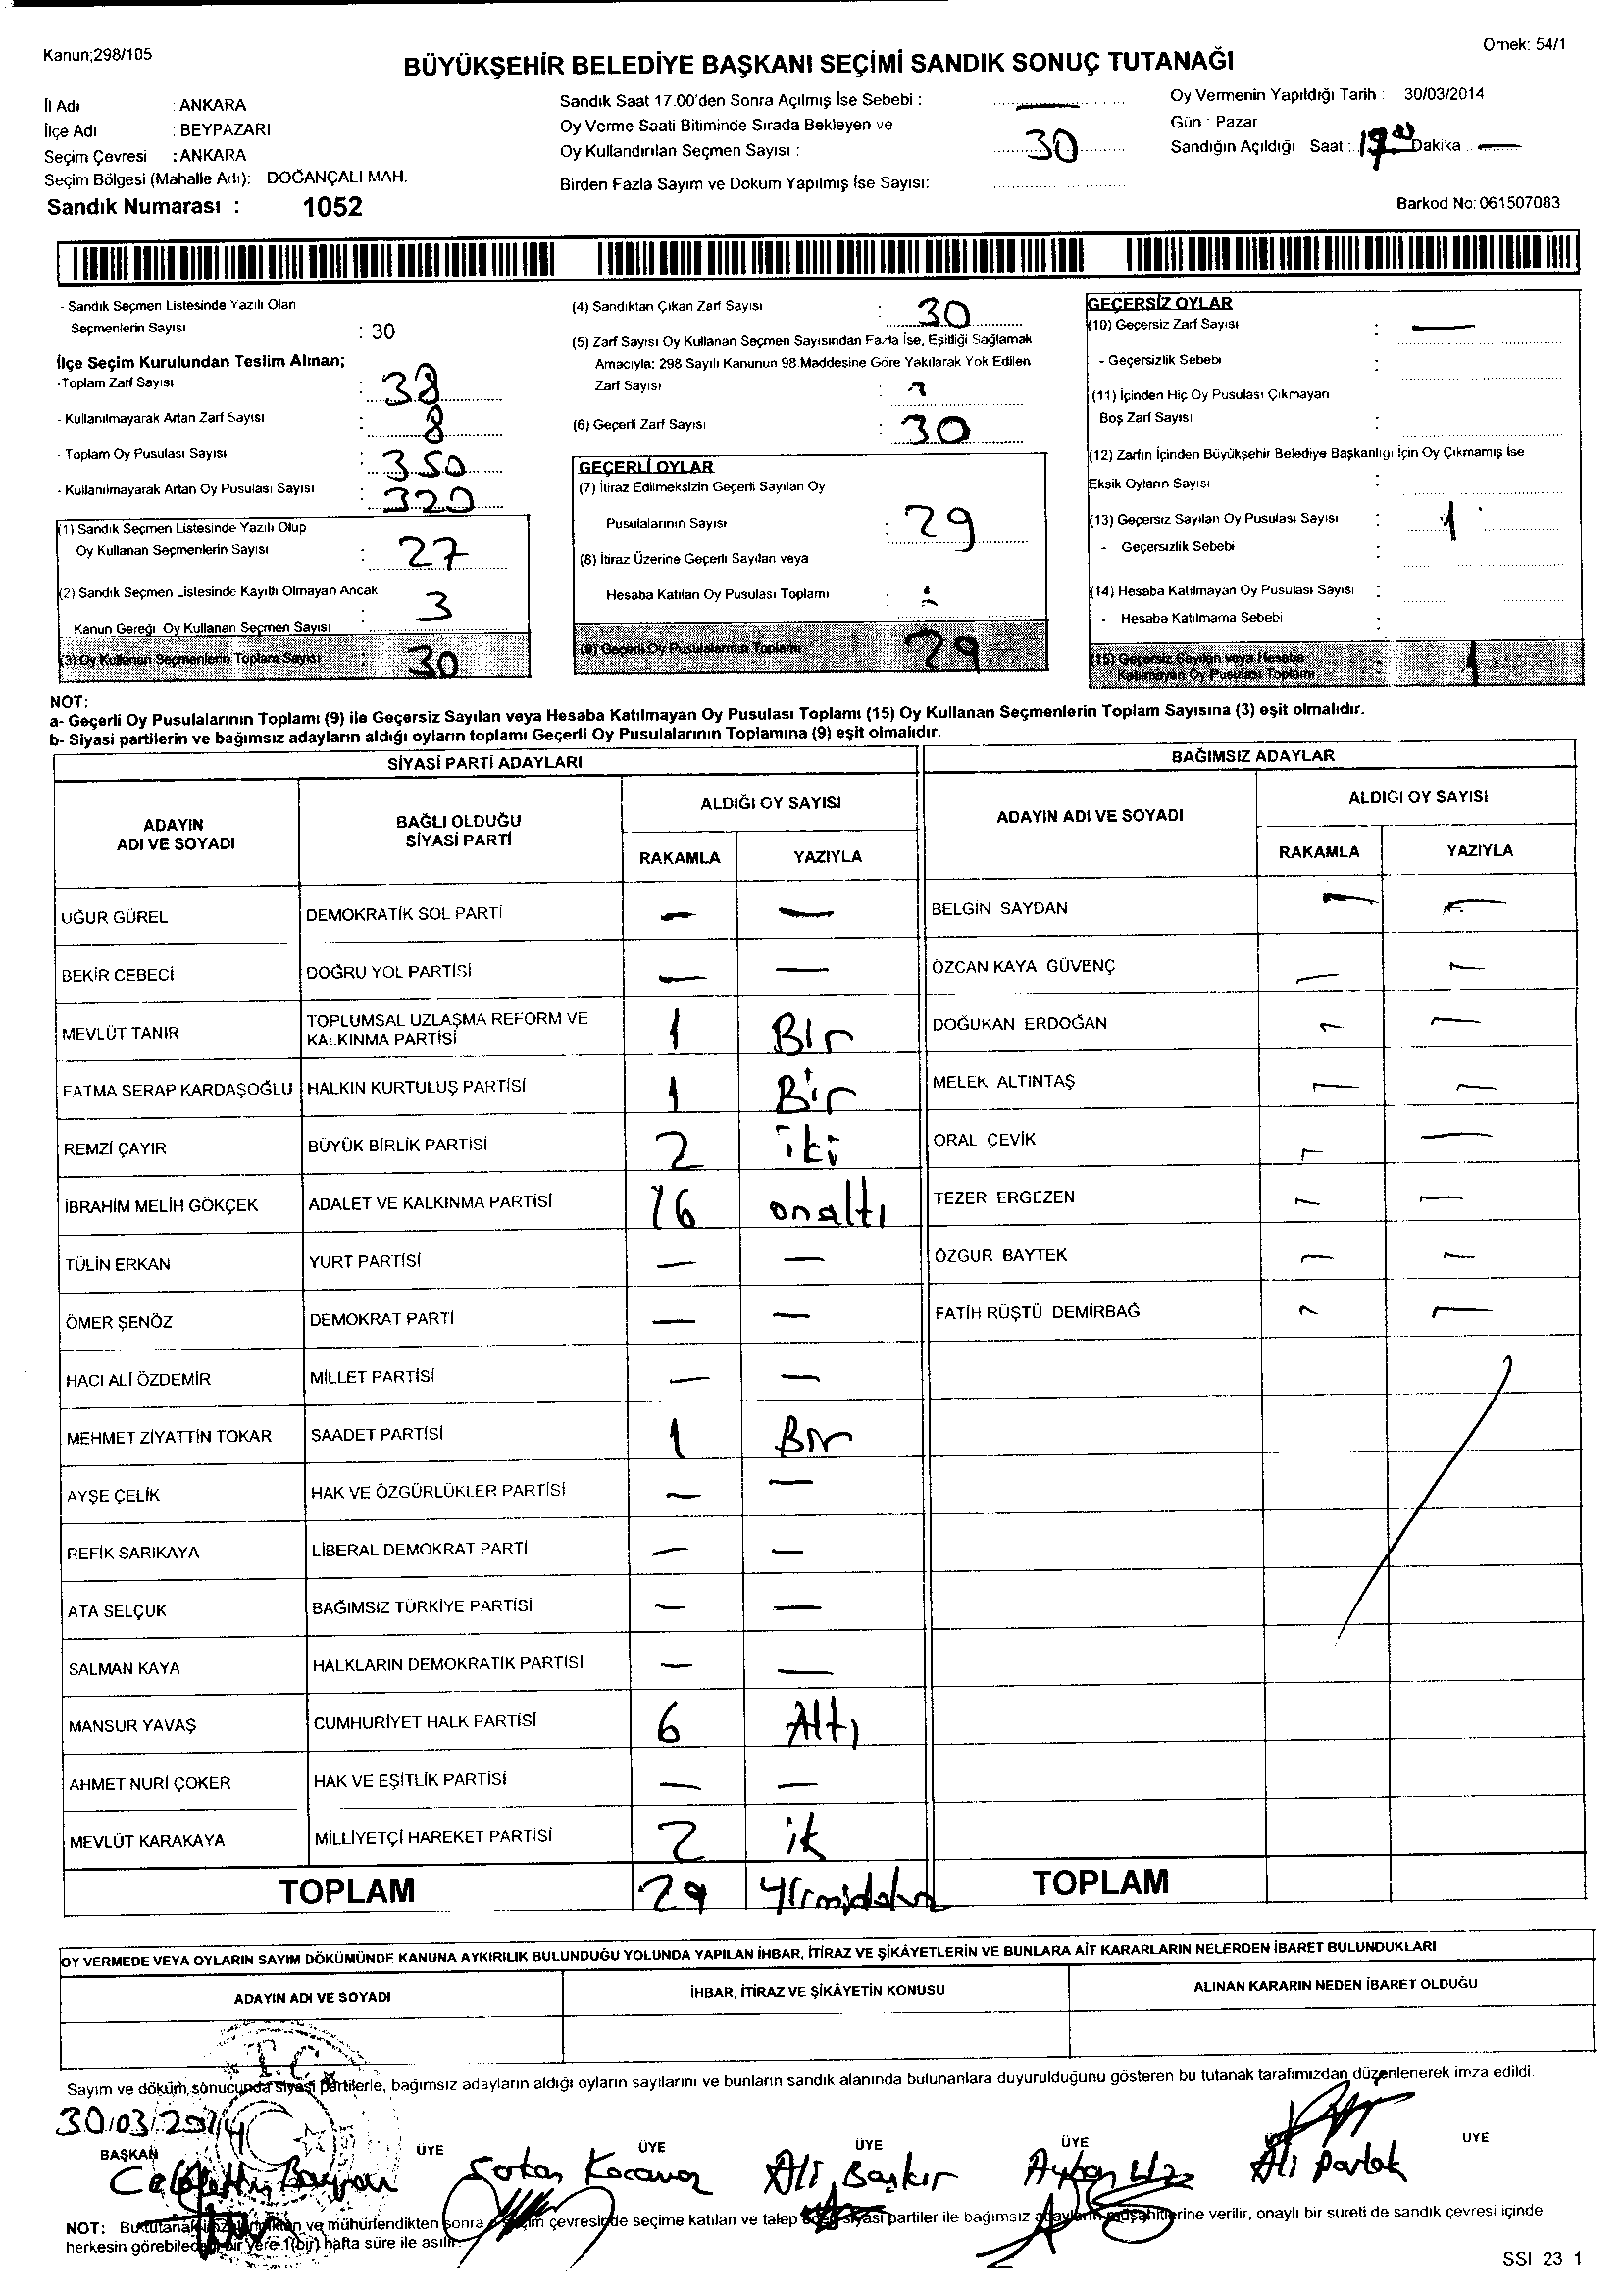 Kanun;298/105
Ornek: 54/1
BÜYÜKŞEHİR BELEDİYE BAŞKANI SEÇİMİ SANDIK SONUÇ TUTANAĞI
İl Adı : ANKARA
İlçe Adı : BEYPAZARI
Seçim Çevresi : ANKARA
Seçim Bölgesi (Mahalle Adı): DOĞANÇALI MAH.
Sandık Numarası : 1052
Sandık Saat 17.00'den Sonra Açılmış İse Sebebi : —
Oy Verme Saati Bitiminde Sırada Bekleyen ve
Oy Kullandırılan Seçmen Sayısı : 30
Birden Fazla Sayım ve Döküm Yapılmış İse Sayısı:
Oy Vermenin Yapıldığı Tarih : 30/03/2014
Gün : Pazar
Sandığın Açıldığı Saat : Dakika : —
Barkod No: 061507083
- Sandık Seçmen Listesinde Yazılı Olan
Seçmenlerin Sayısı : 30
İlçe Seçim Kurulundan Teslim Alınan;
-Toplam Zarf Sayısı : 38
- Kullanılmayarak Artan Zarf Sayısı : 8
- Toplam Oy Pusulası Sayısı : 350
- Kullanılmayarak Artan Oy Pusulası Sayısı : 320
(1) Sandık Seçmen Listesinde Yazılı Olup
Oy Kullanan Seçmenlerin Sayısı : 27
(2) Sandık Seçmen Listesinde Kayıtlı Olmayan Ancak
Kanun Gereği Oy Kullanan Seçmen Sayısı : 3
(3) Oy Kullanan Seçmenlerin Toplam Sayısı : 30
(4) Sandıktan Çıkan Zarf Sayısı : 30
(5) Zarf Sayısı Oy Kullanan Seçmen Sayısından Fazla İse, Eşitliği Sağlamak
Amacıyla: 298 Sayılı Kanunun 98.Maddesine Göre Yakılarak Yok Edilen
Zarf Sayısı :
(6) Geçerli Zarf Sayısı : 30
GEÇERLİ OYLAR
(7) İtiraz Edilmeksizin Geçerli Sayılan Oy
Pusulalarının Sayısı : 29
(8) İtiraz Üzerine Geçerli Sayılan veya
Hesaba Katılan Oy Pusulası Toplamı :
(9) Geçerli Oy Pusulalarının Toplamı 29
GEÇERSİZ OYLAR
(10) Geçersiz Zarf Sayısı : —
- Geçersizlik Sebebi :
(11) İçinden Hiç Oy Pusulası Çıkmayan
Boş Zarf Sayısı :
(12) Zarfın İçinden Büyükşehir Belediye Başkanlığı İçin Oy Çıkmamış İse
Eksik Oyların Sayısı :
(13) Geçersiz Sayılan Oy Pusulası Sayısı : 1
- Geçersizlik Sebebi :
(14) Hesaba Katılmayan Oy Pusulası Sayısı :
- Hesaba Katılmama Sebebi :
(15) Geçersiz Sayılan veya Hesaba
Katılmayan Oy Pusulası Toplamı : 1
NOT:
a- Geçerli Oy Pusulalarının Toplamı (9) ile Geçersiz Sayılan veya Hesaba Katılmayan Oy Pusulası Toplamı (15) Oy Kullanan Seçmenlerin Toplam Sayısına (3) eşit olmalıdır.
b- Siyasi partilerin ve bağımsız adayların aldığı oyların toplamı Geçerli Oy Pusulalarının Toplamına (9) eşit olmalıdır.
SİYASİ PARTİ ADAYLARI
ADAYIN ADI VE SOYADI
BAĞLI OLDUĞU SİYASİ PARTİ
ALDIĞI OY SAYISI
RAKAMLA YAZIYLA
UĞUR GÜREL DEMOKRATİK SOL PARTİ — —
BEKİR CEBECİ DOĞRU YOL PARTİSİ — —
MEVLÜT TANIR TOPLUMSAL UZLAŞMA REFORM VE KALKINMA PARTİSİ 1 Bır
FATMA SERAP KARDAŞOĞLU HALKIN KURTULUŞ PARTİSİ 1 Bir
REMZİ ÇAYIR BÜYÜK BİRLİK PARTİSİ 2 iki
İBRAHİM MELİH GÖKÇEK ADALET VE KALKINMA PARTİSİ 16 onaltı
TÜLİN ERKAN YURT PARTİSİ — —
ÖMER ŞENÖZ DEMOKRAT PARTİ — —
HACI ALİ ÖZDEMİR MİLLET PARTİSİ — —
MEHMET ZİYATTİN TOKAR SAADET PARTİSİ 1 Bır
AYŞE ÇELİK HAK VE ÖZGÜRLÜKLER PARTİSİ — —
REFİK SARIKAYA LİBERAL DEMOKRAT PARTİ — —
ATA SELÇUK BAĞIMSIZ TÜRKİYE PARTİSİ — —
SALMAN KAYA HALKLARIN DEMOKRATİK PARTİSİ — —
MANSUR YAVAŞ CUMHURİYET HALK PARTİSİ 6 Altı
AHMET NURİ ÇOKER HAK VE EŞİTLİK PARTİSİ — —
MEVLÜT KARAKAYA MİLLİYETÇİ HAREKET PARTİSİ 2 ik
TOPLAM 29
BAĞIMSIZ ADAYLAR
ADAYIN ADI VE SOYADI
ALDIĞI OY SAYISI
RAKAMLA YAZIYLA
BELGİN SAYDAN — —
ÖZCAN KAYA GÜVENÇ — —
DOĞUKAN ERDOĞAN — —
MELEK ALTINTAŞ — —
ORAL ÇEVİK — —
TEZER ERGEZEN — —
ÖZGÜR BAYTEK — —
FATİH RÜŞTÜ DEMİRBAĞ — —
TOPLAM
OY VERMEDE VEYA OYLARIN SAYIM DÖKÜMÜNDE KANUNA AYKIRILIK BULUNDUĞU YOLUNDA YAPILAN İHBAR, İTİRAZ VE ŞİKÂYETLERİN VE BUNLARA AİT KARARLARIN NELERDEN İBARET BULUNDUKLARI
ADAYIN ADI VE SOYADI İHBAR, İTİRAZ VE ŞİKÂYETİN KONUSU ALINAN KARARIN NEDEN İBARET OLDUĞU
T.C.
Sayım ve döküm sonucunda siyasi partilerle, bağımsız adayların aldığı oyların sayılarını ve bunların sandık alanında bulunanlara duyurulduğunu gösteren bu tutanak tarafımızdan düzenlenerek imza edildi.
30/03/2014
BAŞKAN ÜYE ÜYE ÜYE ÜYE ÜYE
Ali Başkır Ali Parlak
NOT: Bu tutanak ve mühürlendikten sonra seçim çevresinde seçime katılan ve talep eden siyasi partiler ile bağımsız adayların müşahitlerine verilir, onaylı bir sureti de sandık çevresi içinde
herkesin görebileceği bir yere 1(bir) hafta süre ile asılır.
SSI 23 1